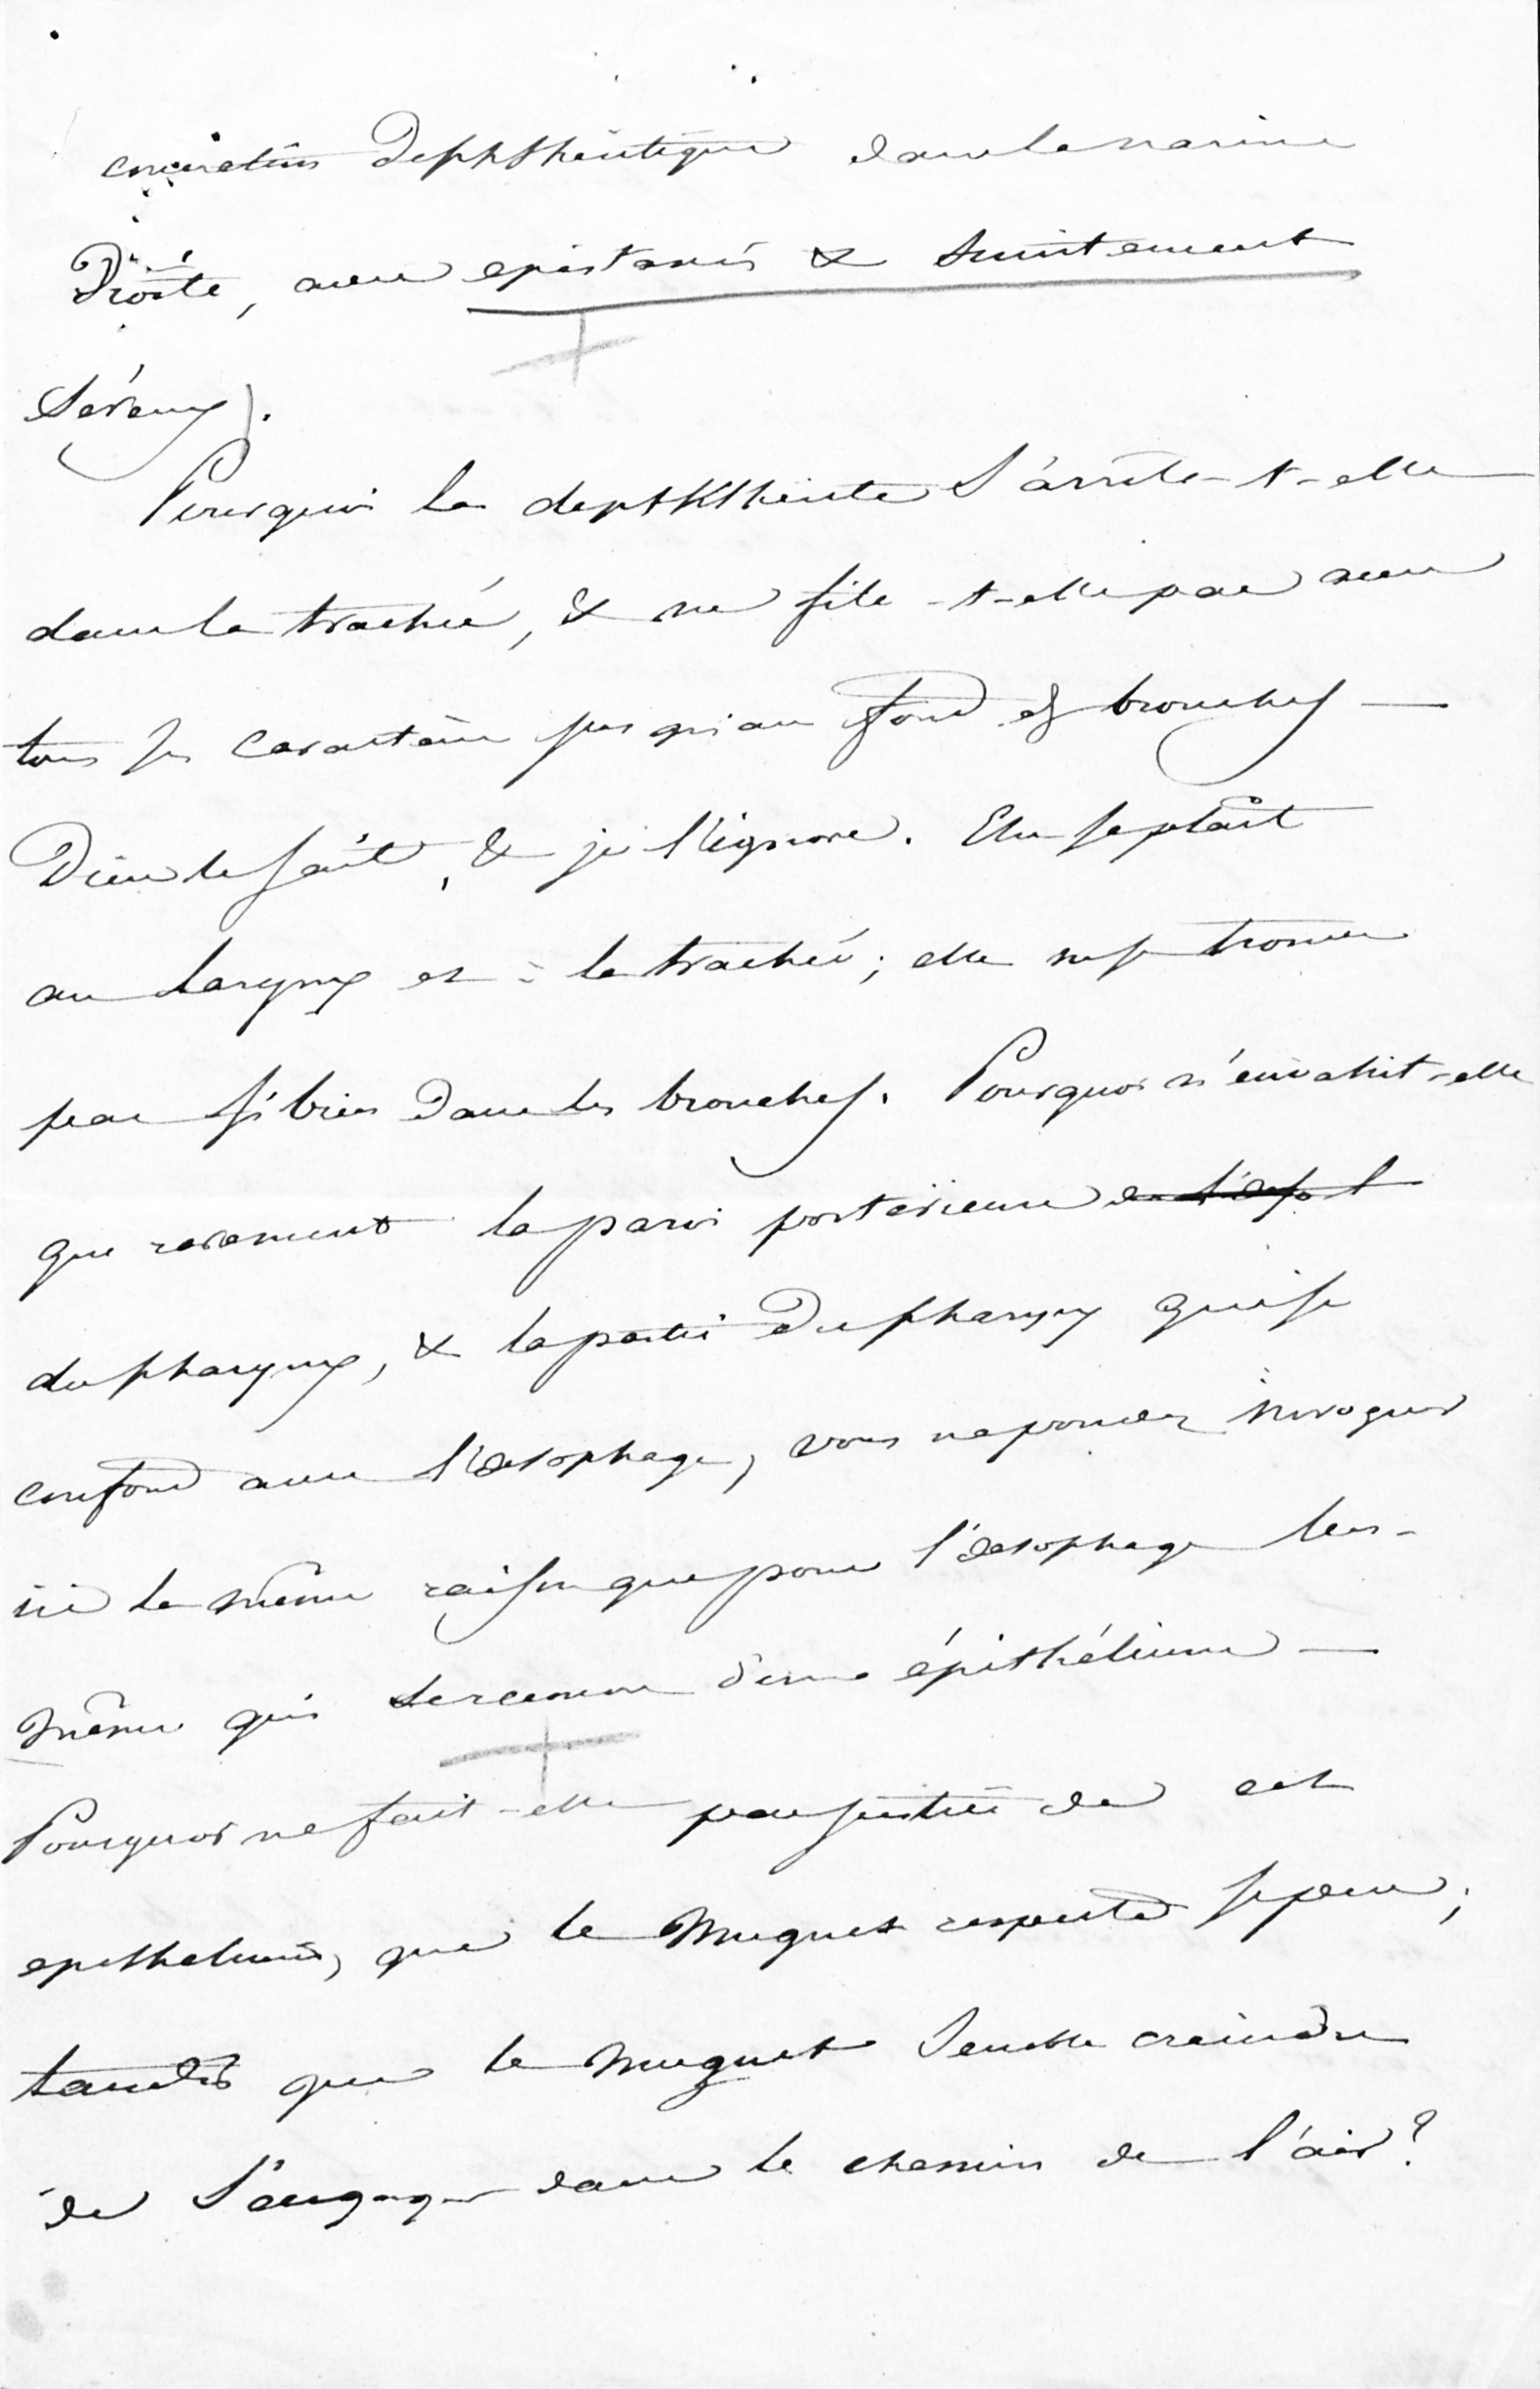 concrétions diphthéritique dans la narine
Droite, avec epistaxis & suintement
séreux).
Pourquoi la diphthérite s'arrête-t-elle
dans la trachée, & ne file-t-elle pas avec
tous ses caractères jusqu'au fond des bronches —
Dieu le sait, & je l'ignore. Elle se plaît
au larynx et à la trachée; elle ne se trouve
pas si bien dans les bronches. Pourquoi n'envahit-elle
que rarement la paroi postérieure
du pharynx, & la partie du pharynx qui se
confond avec l'œsophage, vous ne pouvez invoquer
ici la même raison que pour l'œsophage lui-
même qui se recouvre d'un épithélium —
Pourquoi ne fait-elle pas justice de cet
epithelium, que le Muguet respecte si peu;
tandis que le muguet semble craindre
de s'engager dans le chemin de l'air?